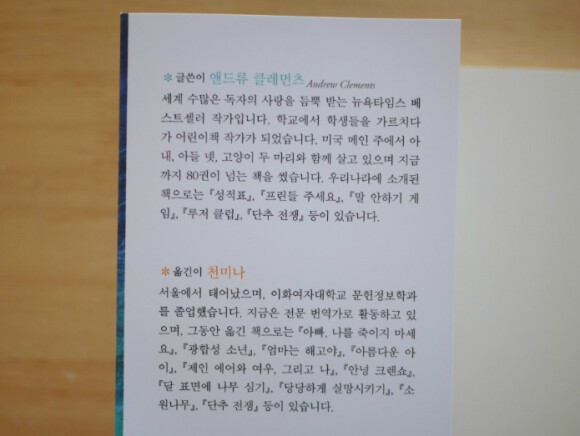 * 글쓴이 앤드류 클레먼츠 Andrew Clements
세계 수많은 독자의 사랑을 듬뿍 받는 뉴욕타임스 베
스트셀러 작가입니다. 학교에서 학생들을 가르치다
가 어린이책 작가가 되었습니다. 미국 메인 주에서 아
내, 아들 넷, 고양이 두 마리와 함께 살고 있으며 지금
까지 80권이 넘는 책을 썼습니다. 우리나라에 소개된
책으로는 『성적표』, 『프린들 주세요』, 『말 안하기 게
임』, 『루저 클럽』, 『단추 전쟁』 등이 있습니다.
* 옮긴이 천미나
서울에서 태어났으며, 이화여자대학교 문헌정보학과
를 졸업했습니다. 지금은 전문 번역가로 활동하고 있
으며, 그동안 옮긴 책으로는 『아빠, 나를 죽이지 마세
요』, 『광합성 소년』, 『엄마는 해고야』, 『아름다운 아
이』, 『제인 에어와 여우, 그리고 나』, 『안녕 크렌쇼』,
『달 표면에 나무 심기』, 『당당하게 실망시키기』, 『소
원나무』, 『단추 전쟁』 등이 있습니다.